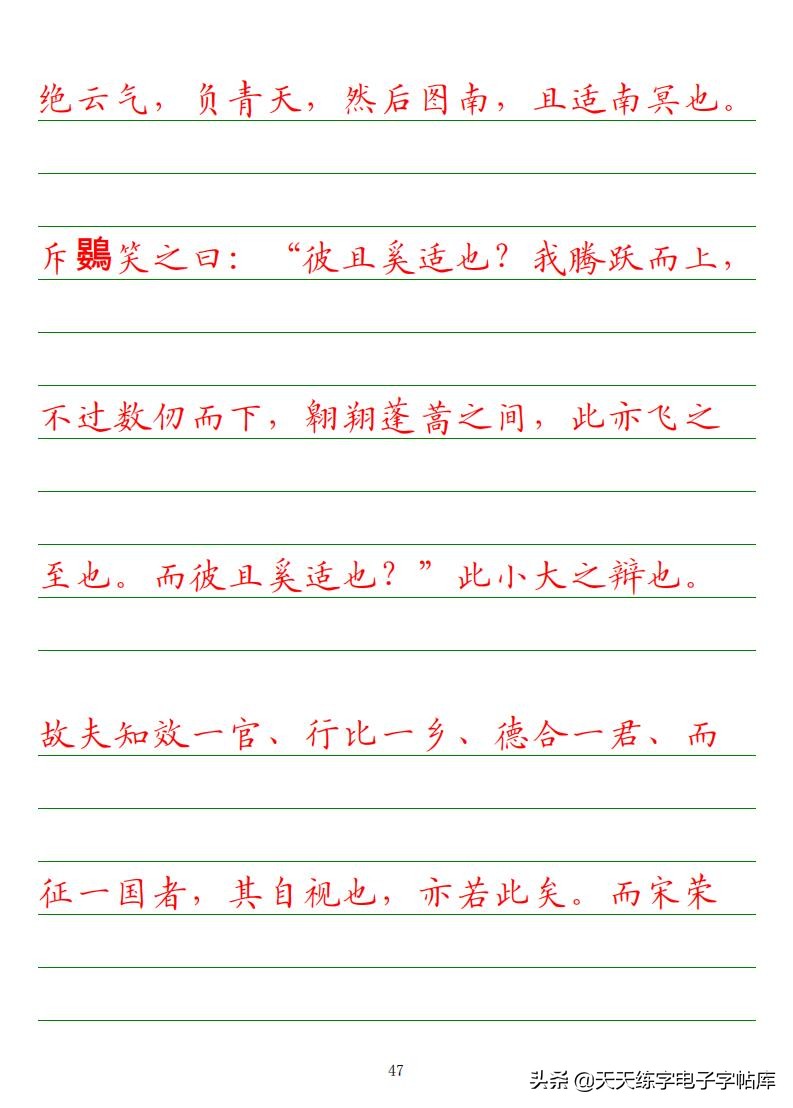 绝云气，负青天，然后图南，且适南冥也。
斥鷃笑之曰：“彼且奚适也？我腾跃而上，
不过数仞而下，翱翔蓬蒿之间，此亦飞之
至也。而彼且奚适也？”此小大之辩也。
故夫知效一官、行比一乡、德合一君、而
征一国者，其自视也，亦若此矣。而宋荣
47
头条 @天天练字电子字帖库